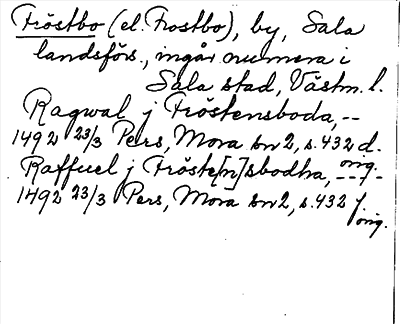 Fröstbo (el. Frostbo), by, Sala
landsförs., ingår numera i
Sala stad, Västm. l.
Ragwal j Fröstensboda, --
1492 23/3 Pers, Mora bn 2, s. 432 d.
orig.
Raffuel j Fröste[n]sbodha, --
1492 23/3 Pers, Mora bn 2, s. 432 f.
orig.